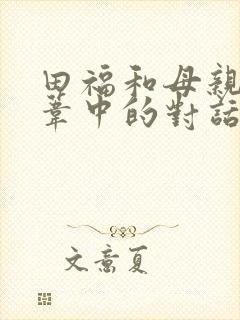 田福和母親
葦中的對話
文意夏